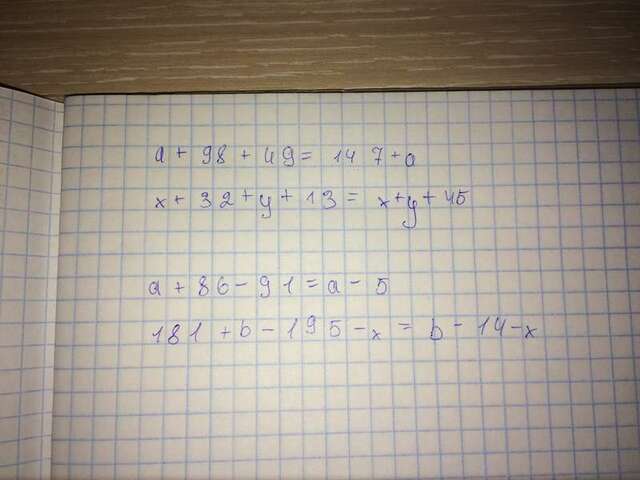 a + 98 + 49 = 147 + a
x + 32 + y + 13 = x + y + 45
a + 86 - 91 = a - 5
181 + b - 195 - x = b - 14 - x